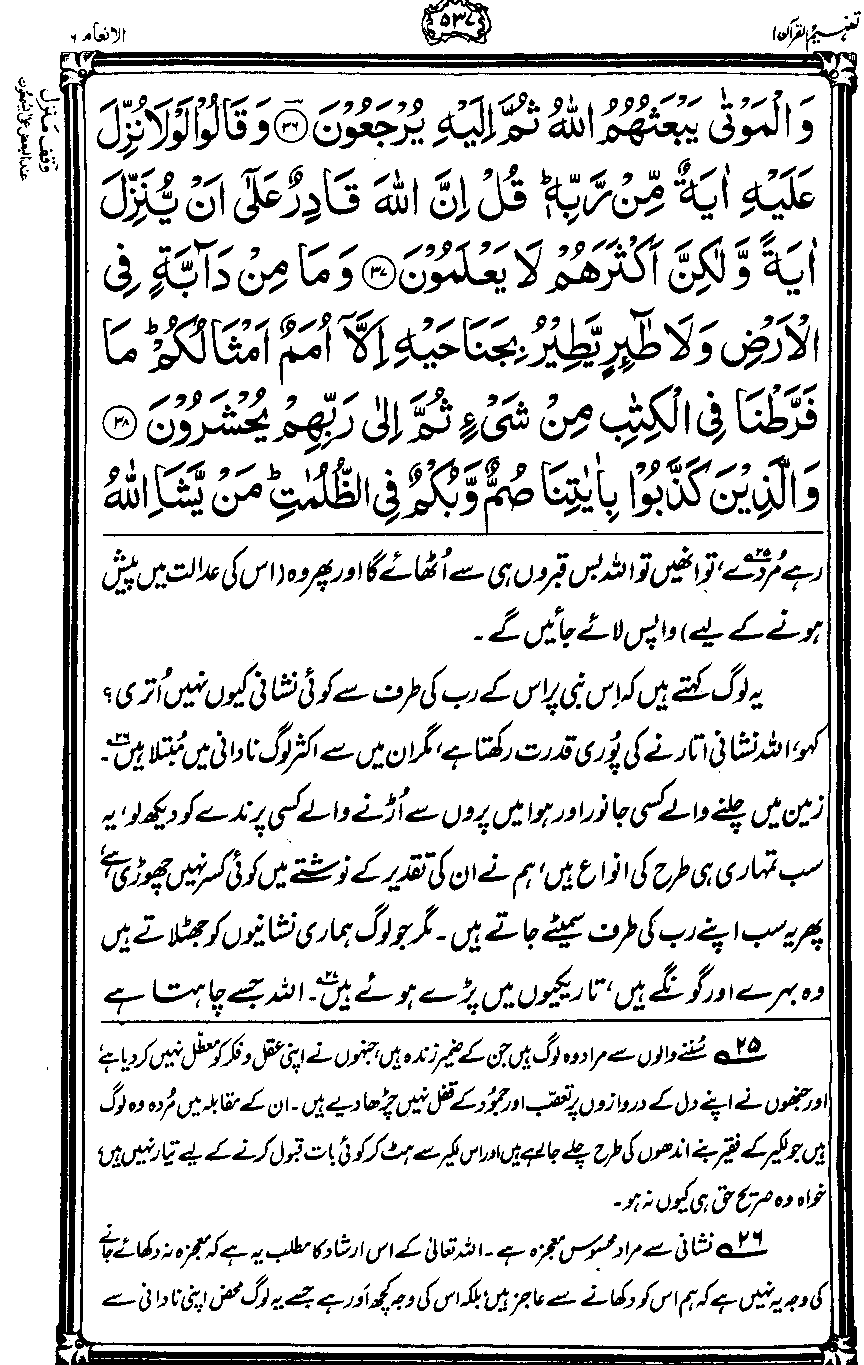 تفہیم القرآن ۱
۵۳۷
الانعام ۶
وَالْمَوْتٰى يَبْعَثُهُمُ اللّٰهُ ثُمَّ اِلَيْهِ يُرْجَعُوْنَ ۝۳۶ وَقَالُوْا لَوْلَا نُزِّلَ
عَلَيْهِ اٰيَةٌ مِّنْ رَّبِّهٖ ؕ قُلْ اِنَّ اللّٰهَ قَادِرٌ عَلٰٓى اَنْ يُّنَزِّلَ
اٰيَةً وَّلٰكِنَّ اَكْثَرَهُمْ لَا يَعْلَمُوْنَ ۝۳۷ وَمَا مِنْ دَآبَّةٍ فِى
الْاَرْضِ وَلَا طٰٓئِرٍ يَّطِيْرُ بِجَنَاحَيْهِ اِلَّآ اُمَمٌ اَمْثَالُكُمْ ؕ مَا
فَرَّطْنَا فِى الْكِتٰبِ مِنْ شَىْءٍ ثُمَّ اِلٰى رَبِّهِمْ يُحْشَرُوْنَ ۝۳۸
وَالَّذِيْنَ كَذَّبُوْا بِاٰيٰتِنَا صُمٌّ وَّبُكْمٌ فِى الظُّلُمٰتِ ؕ مَنْ يَّشَاِ اللّٰهُ
رہے مُردے۲۵، تو انھیں تو اللہ بس قبروں ہی سے اُٹھائے گا اور پھر وہ (اس کی عدالت میں پیش
ہونے کے لیے) واپس لائے جائیں گے۔
یہ لوگ کہتے ہیں کہ اِس نبی پر اس کے رب کی طرف سے کوئی نشانی کیوں نہیں اُتری؟
کہو، اللہ نشانی اتارنے کی پُوری قدرت رکھتا ہے، مگر ان میں سے اکثر لوگ نادانی میں مُبتلا ہیں۲۶۔
زمین میں چلنے والے کسی جانور اور ہوا میں پروں سے اُڑنے والے کسی پرندے کو دیکھ لو، یہ
سب تمہاری ہی طرح کی انواع ہیں، ہم نے ان کی تقدیر کے نوشتے میں کوئی کسر نہیں چھوڑی ہے،
پھر یہ سب اپنے رب کی طرف سمیٹے جاتے ہیں۔ مگر جو لوگ ہماری نشانیوں کو جھٹلاتے ہیں
وہ بہرے اور گونگے ہیں، تاریکیوں میں پڑے ہوئے ہیں۲۷۔ اللہ جسے چاہتا ہے
۲۵ سُننے والوں سے مراد وہ لوگ ہیں جن کے ضمیر زندہ ہیں، جنہوں نے اپنی عقل و فکر کو معطّل نہیں کر دیا ہے،
اور جنھوں نے اپنے دل کے دروازوں پر تعصّب اور جمُود کے قفل نہیں چڑھا دیے ہیں۔ ان کے مقابلہ میں مُردہ وہ لوگ
ہیں جو لکیر کے فقیر بنے اندھوں کی طرح چلے جا رہے ہیں اور اس لکیر سے ہٹ کر کوئی بات قبول کرنے کے لیے تیار نہیں ہیں،
خواہ وہ صریح حق ہی کیوں نہ ہو۔
۲۶ نشانی سے مراد محسوس معجزہ ہے۔ اللہ تعالیٰ کے اس ارشاد کا مطلب یہ ہے کہ معجزہ نہ دکھائے جانے
کی وجہ یہ نہیں ہے کہ ہم اس کو دکھانے سے عاجز ہیں، بلکہ اس کی وجہ کچھ اَور ہے جسے یہ لوگ محض اپنی نادانی سے